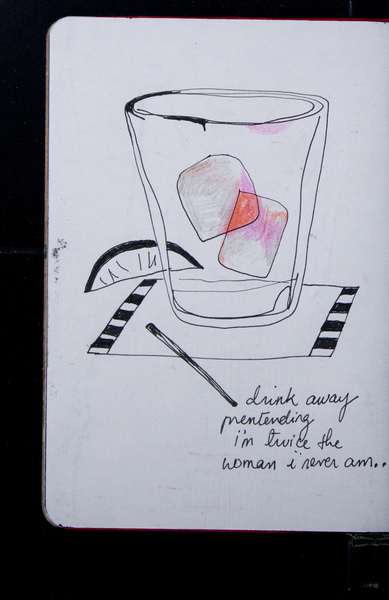 drink away
prentending
i'm twice the
woman i never am..